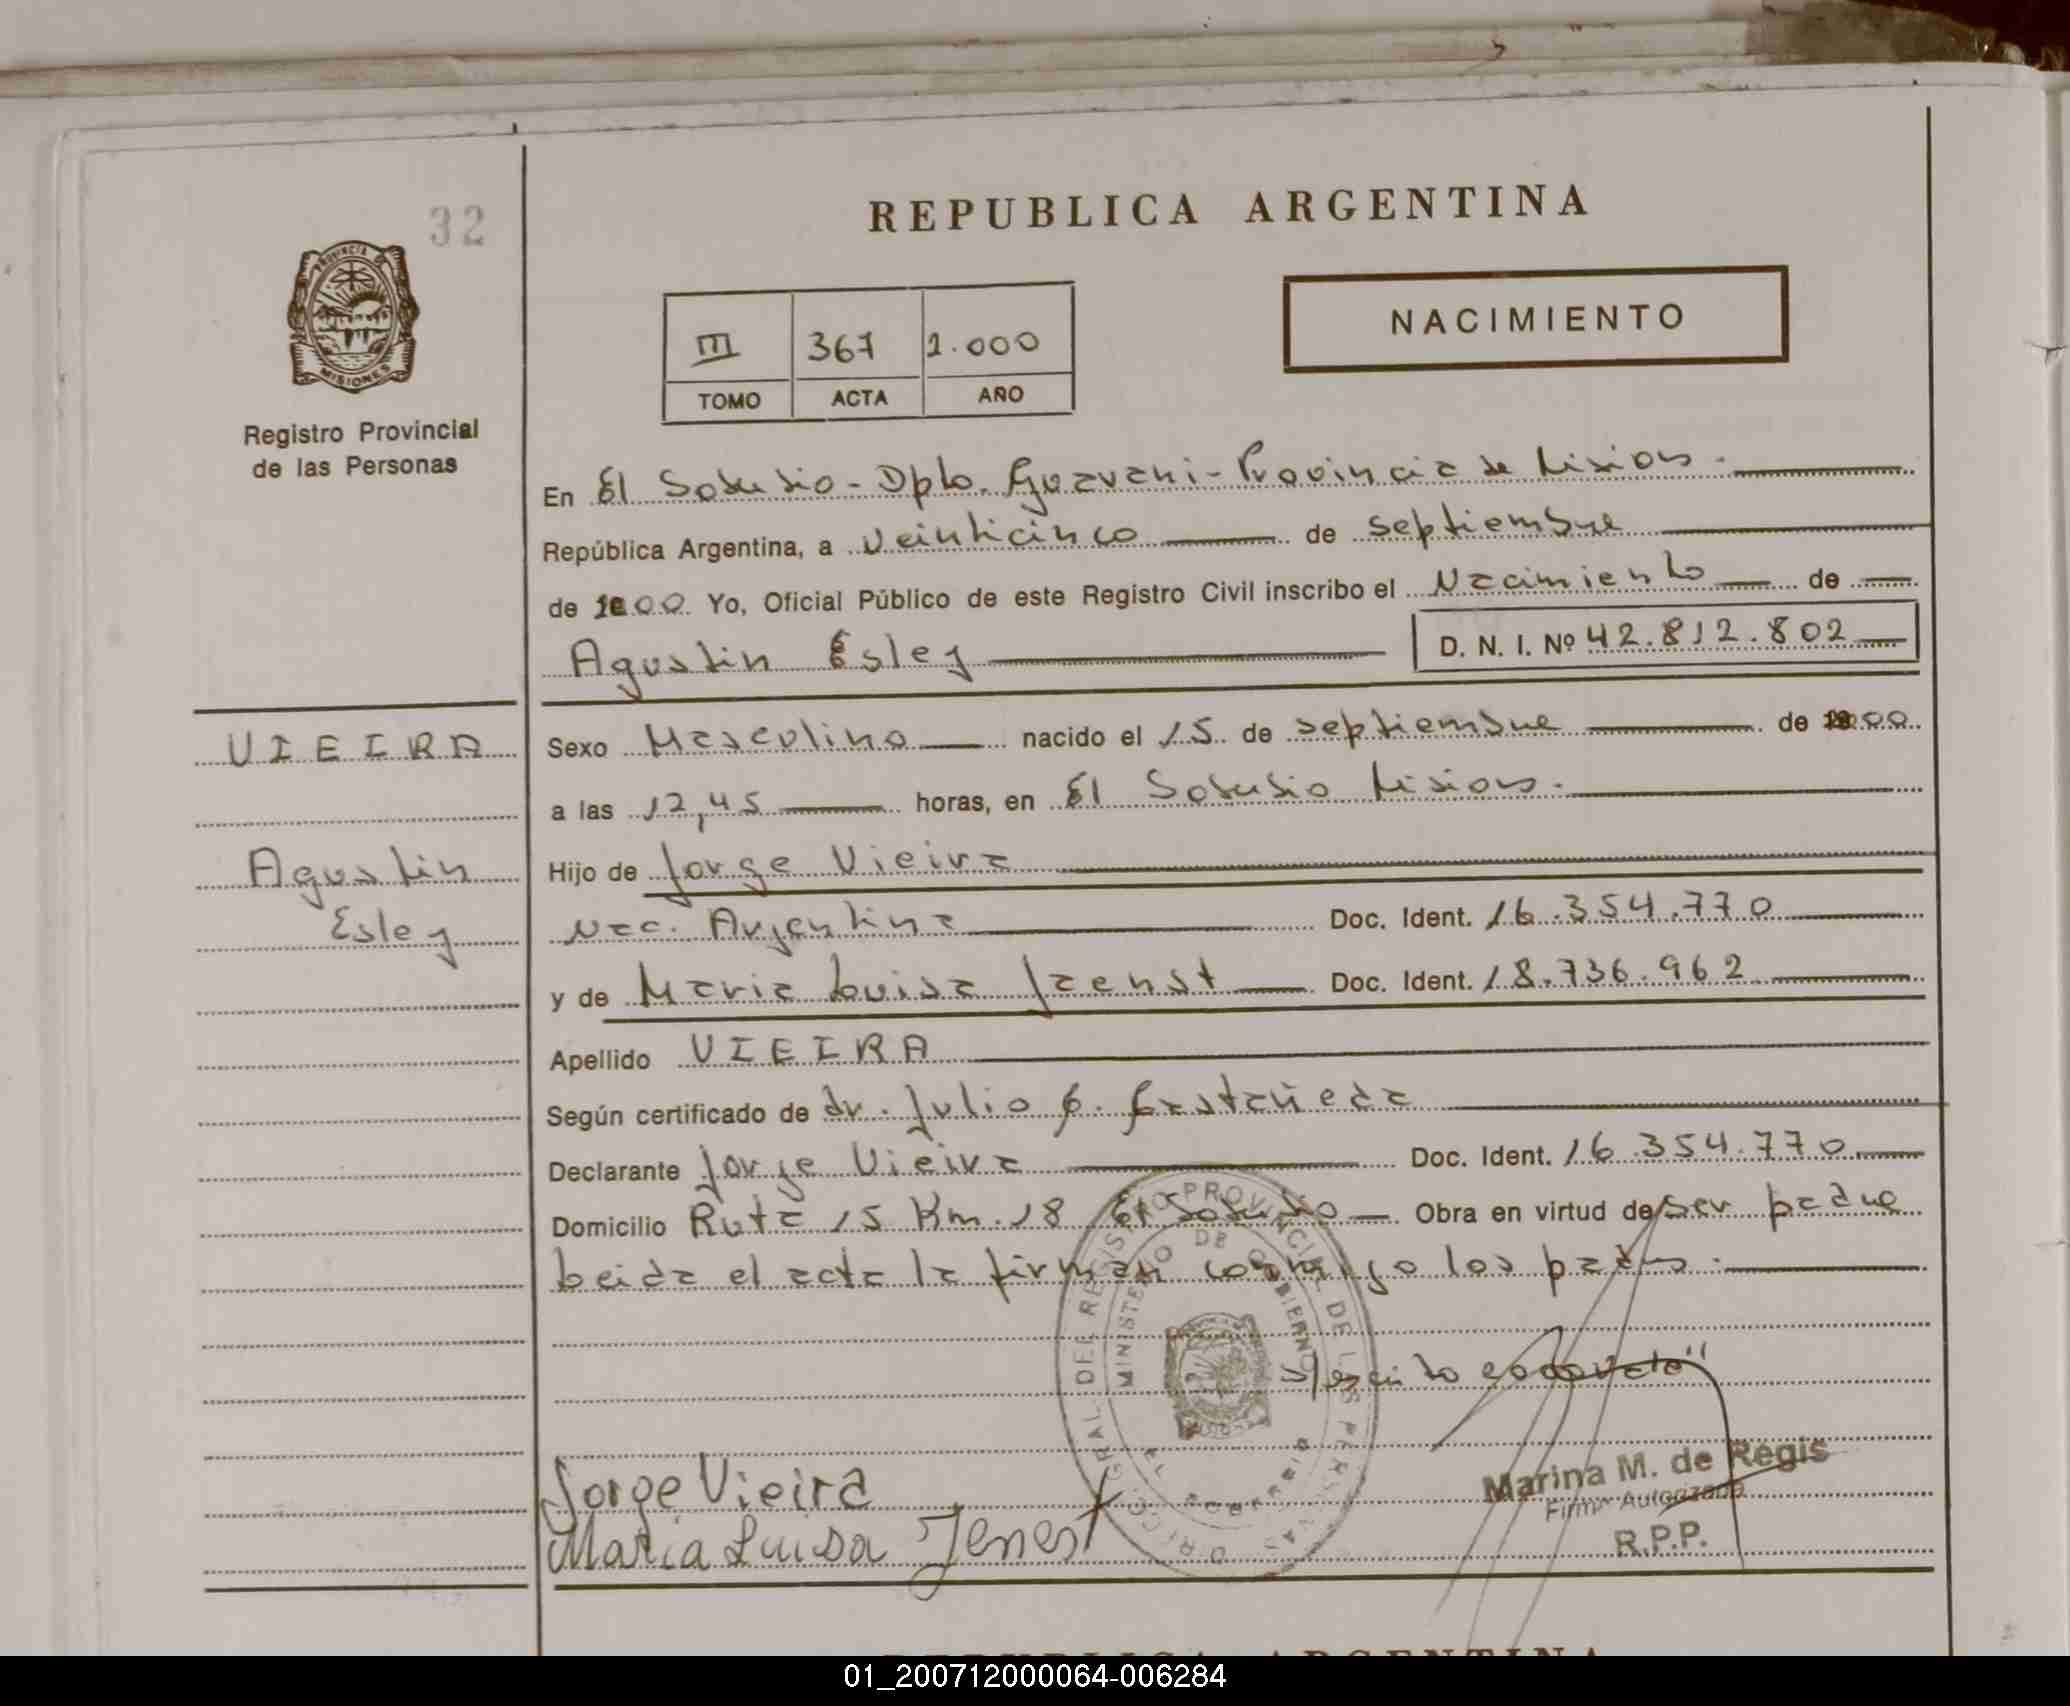 32
REPUBLICA ARGENTINA
PROVINCIA DE
MISIONES
NACIMIENTO
III 367 2.000
TOMO ACTA AÑO
Registro Provincial
de las Personas
En El Soberbio - Dpto. Guarani - Provincia de Misiones.
República Argentina, a veinticinco de septiembre
de 2000 Yo, Oficial Público de este Registro Civil inscribo el Nacimiento de
Agustin Esley D. N. I. Nº 42.812.802
VIEIRA
Sexo Masculino nacido el 15 de septiembre de 2000
a las 12,45 horas, en El Soberbio Misiones.
Agustin
Esley
Hijo de Jorge Vieira
nac. Argentina Doc. Ident. 16.354.770
y de Maria Luisa Jaenst Doc. Ident. 18.736.962
Apellido VIEIRA
Según certificado de dr. Julio C. Castañeda
Declarante Jorge Vieira Doc. Ident. 16.354.770
Domicilio Ruta 15 Km. 18 El Soberbio Obra en virtud de ser padre
Leida el acta la firman conmigo los padres.
DIRECC. GRAL. DEL REGISTRO PROVINCIAL DE LAS PERSONAS
MINISTERIO DE GOBIERNO
EL SOBERBIO
Jorge Vieira
Maria Luisa Jenest
Marina M. de Regis
Firma Autorizada
R.P.P.
REPUBLICA ARGENTINA
01_200712000064-006284